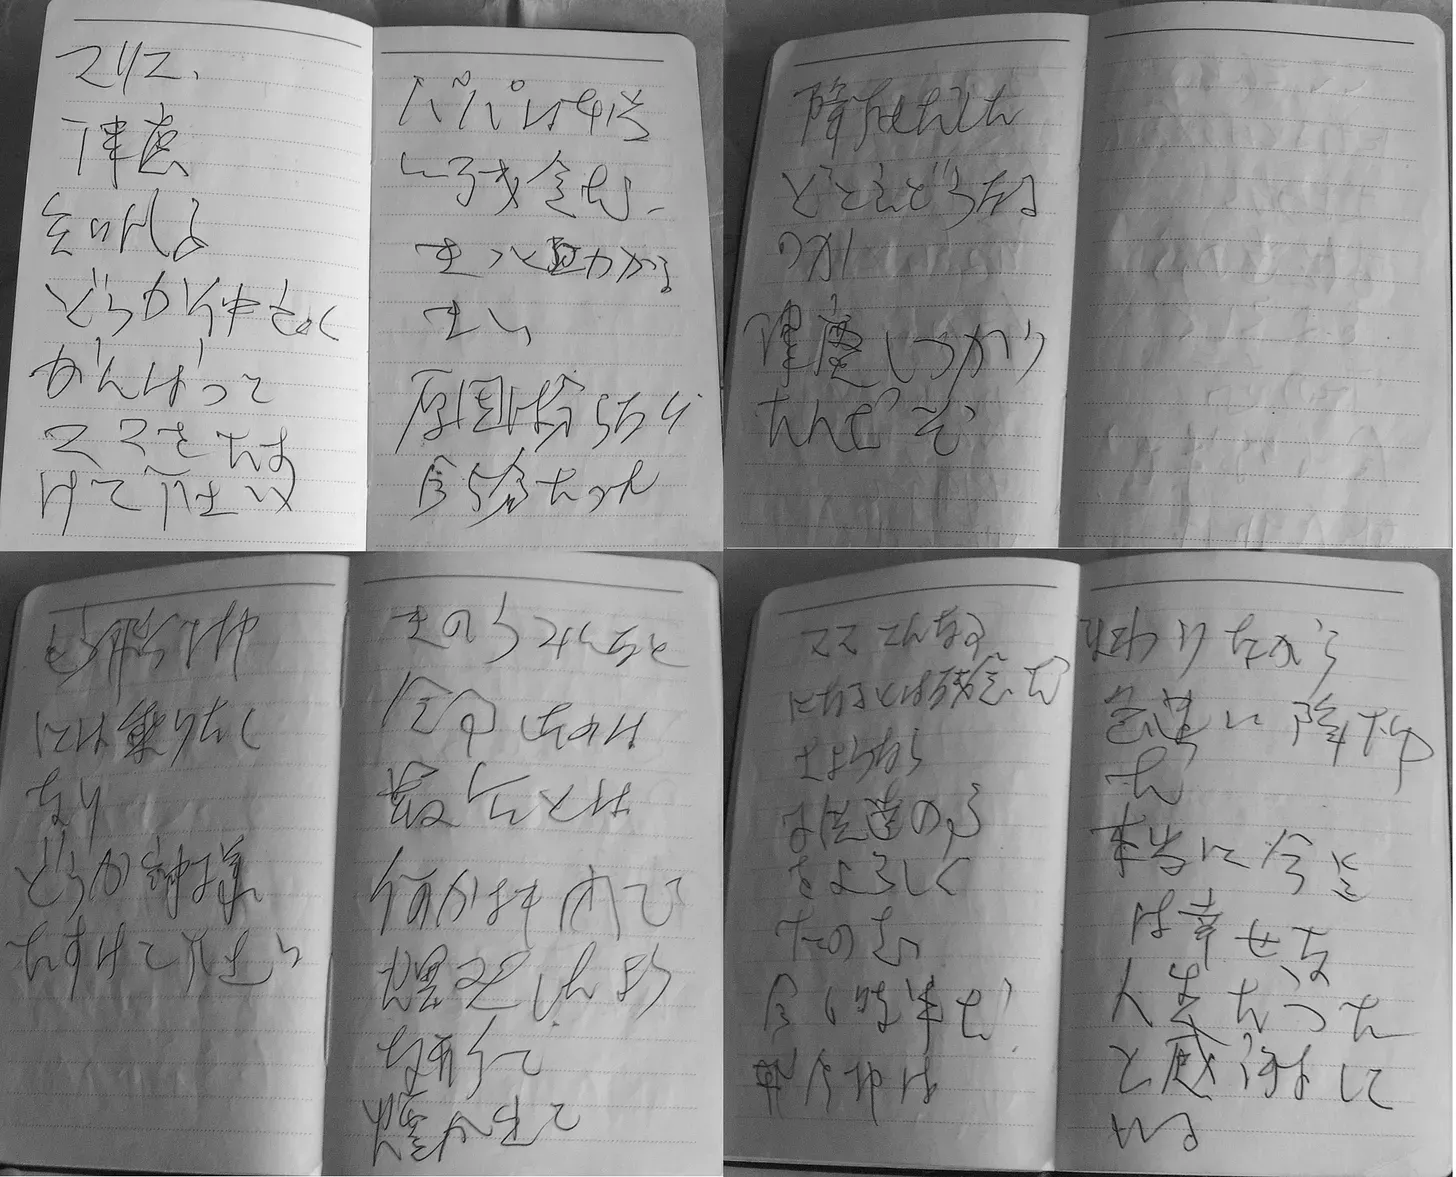 マリコ、
津慶
知代子
どうか仲良く
がんばって
ママをたす
けて下さい
パパは本当
に残念だ
きっと助かる
まい
原因は分らない
今五分たった
もう飛行機
には乗りたく
ない
どうか神様
たすけて下さい
きのうみんなと
食事したのは
最后とは
何か機内で
爆発したよう
な形で
煙が出て
降下しだした
どこえどうなる
のか
津慶しっかり
たのんだぞ
ママこんな事
になるとは残念だ
さようなら
子供達の事
をよろしく
たのむ
今六時半だ
飛行機は
まわりながら
急速に降下中
だ
本当に今迄
は幸せな
人生だった
と感謝して
いる